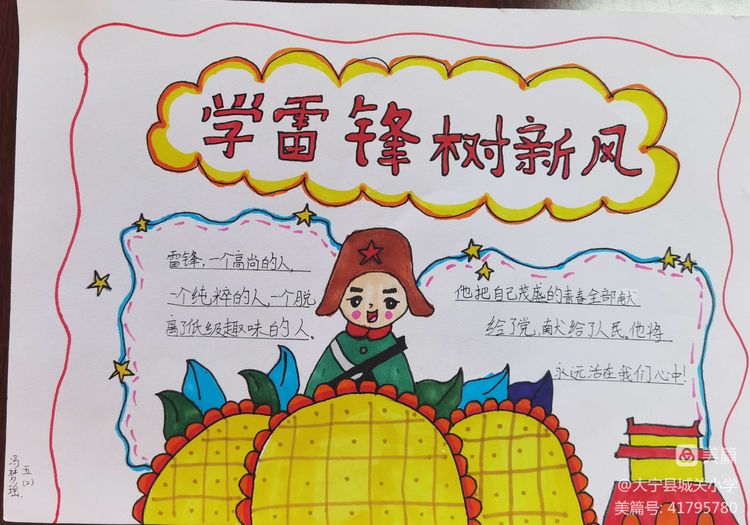 学雷锋树新风
雷锋,一个高尚的人,
一个纯粹的人,一个脱
离了低级趣味的人。
他把自己茂盛的青春全部献
给了党,献给了人民。他将
永远活在我们心中!
五(2)
冯梦瑶
美篇
@大宁县城关小学
美篇号: 41795780